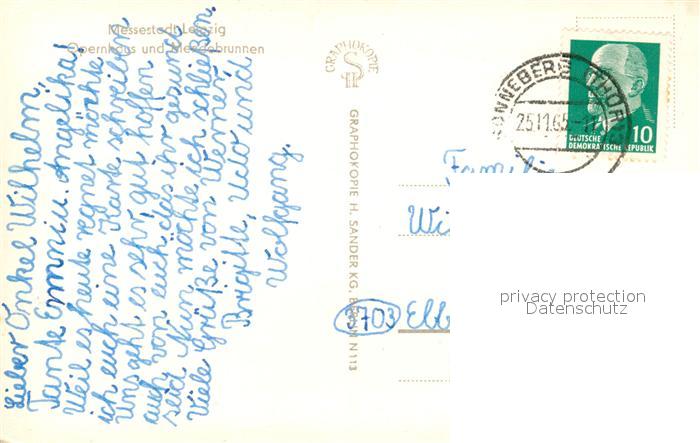 Messestadt Leipzig
Opernhaus und Mendebrunnen
Lieber Onkel Wilhelm,
Tante Emmi u. Angelika,
Weil es heute regnet möchte
ich euch eine Karte schreiben
Uns geht es sehr gut hoffen
auch von euch das ihr gesund
seid Nun möchte ich schließen.
Viele Grüße von Werner
Brigitte, Udo und
Wolfgang.
GRAPHOKOPIE
GRAPHOKOPIE H. SANDER KG, BERLIN N 113
SONNEBERG (THÜR)
25.11.65
10
DEUTSCHE
DEMOKRATISCHE REPUBLIK
Familie
Wi
3703 Elb
privacy protection
Datenschutz